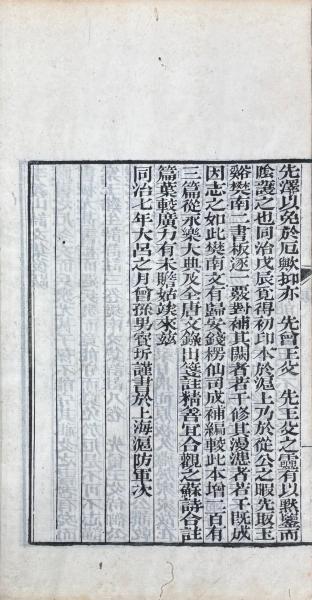 先澤以免於厄歟抑亦　先曾王父　先王父之靈有以默鑒而
陰護之也同治戊辰覓得初印本於滬上乃於從公之暇先取玉
谿樊南二書板逐一覈對補其闕者若干修其漫漶者若干既成
因志之如此樊南文有歸安錢楞仙司成補編較此本增二百有
三篇從永樂大典及全唐文錄出箋註精善宜合觀之蘇詩合註
篇葉較廣力有未贍姑竢來茲
同治七年大呂之月曾孫男寶圻謹書於上海滬防軍次